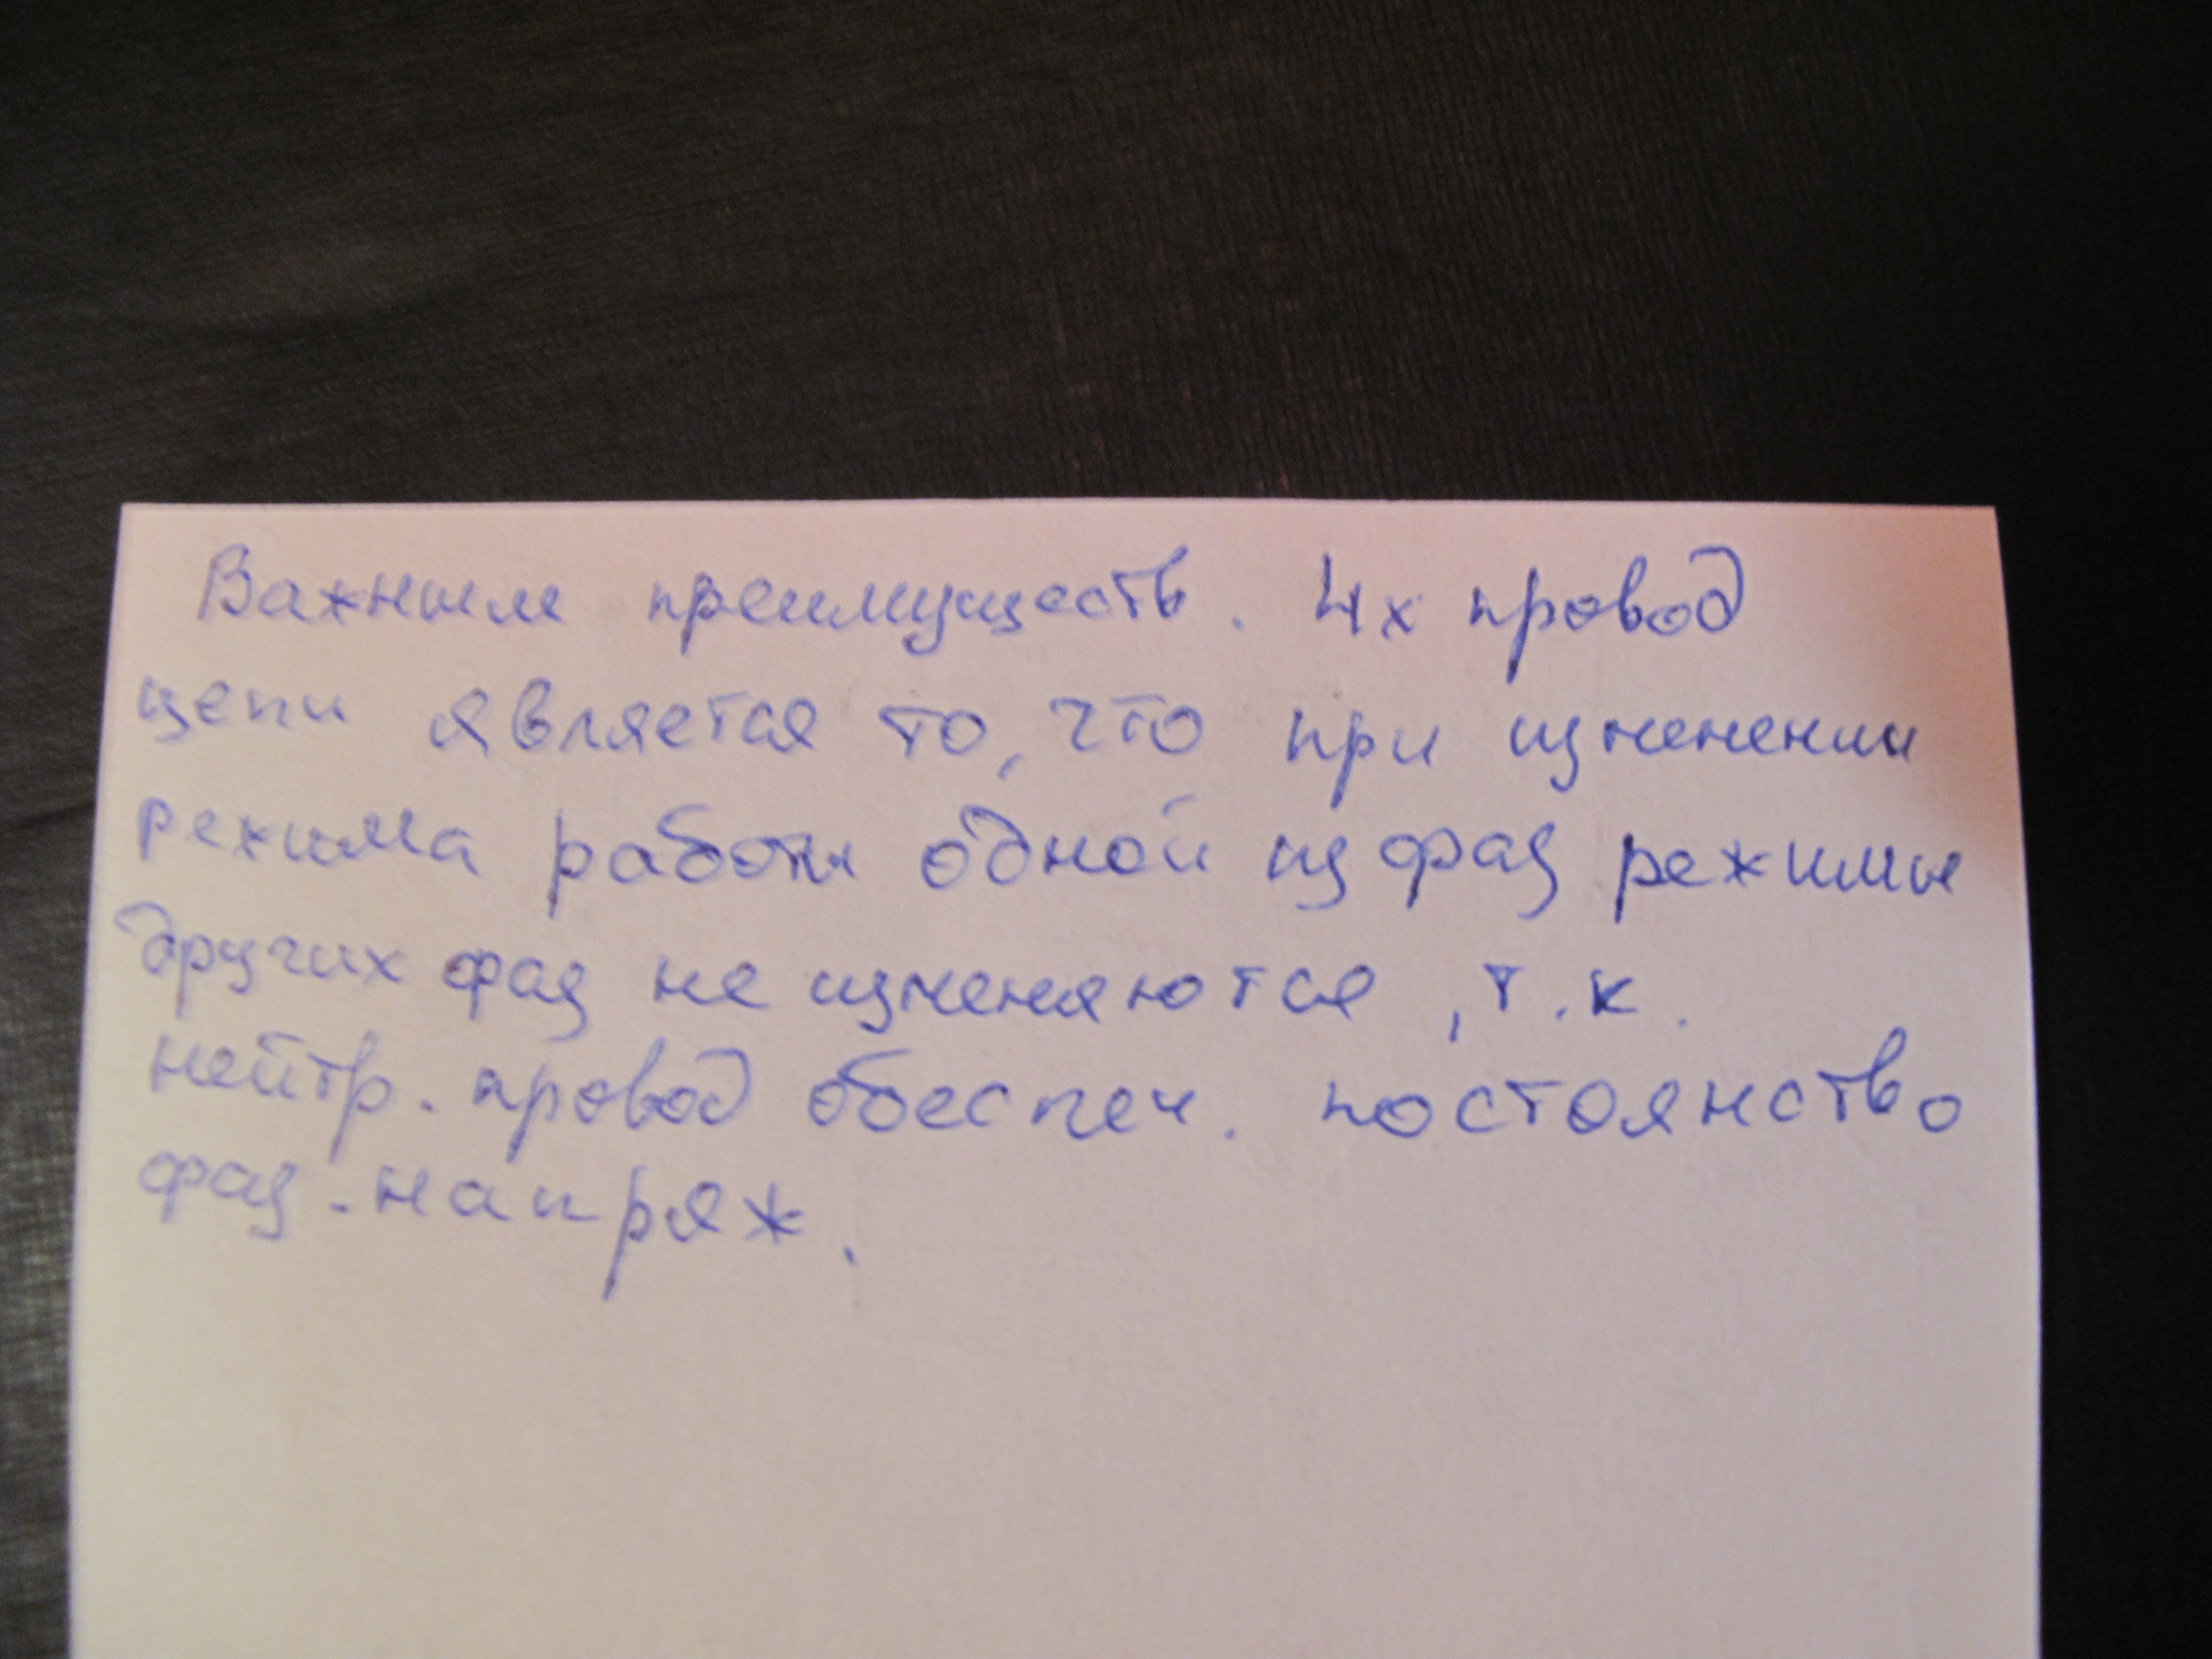 Важным преимуществ. 4х провод
цепи является то, что при изменении
режима работы одной из фаз режимы
других фаз не изменяются, т.к.
нейтр. провод обеспеч. постоянство
фаз. напряж.